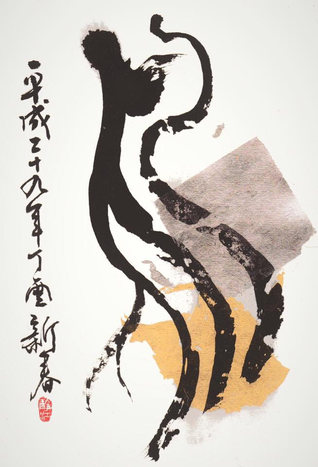 平成二十九年丁酉新春